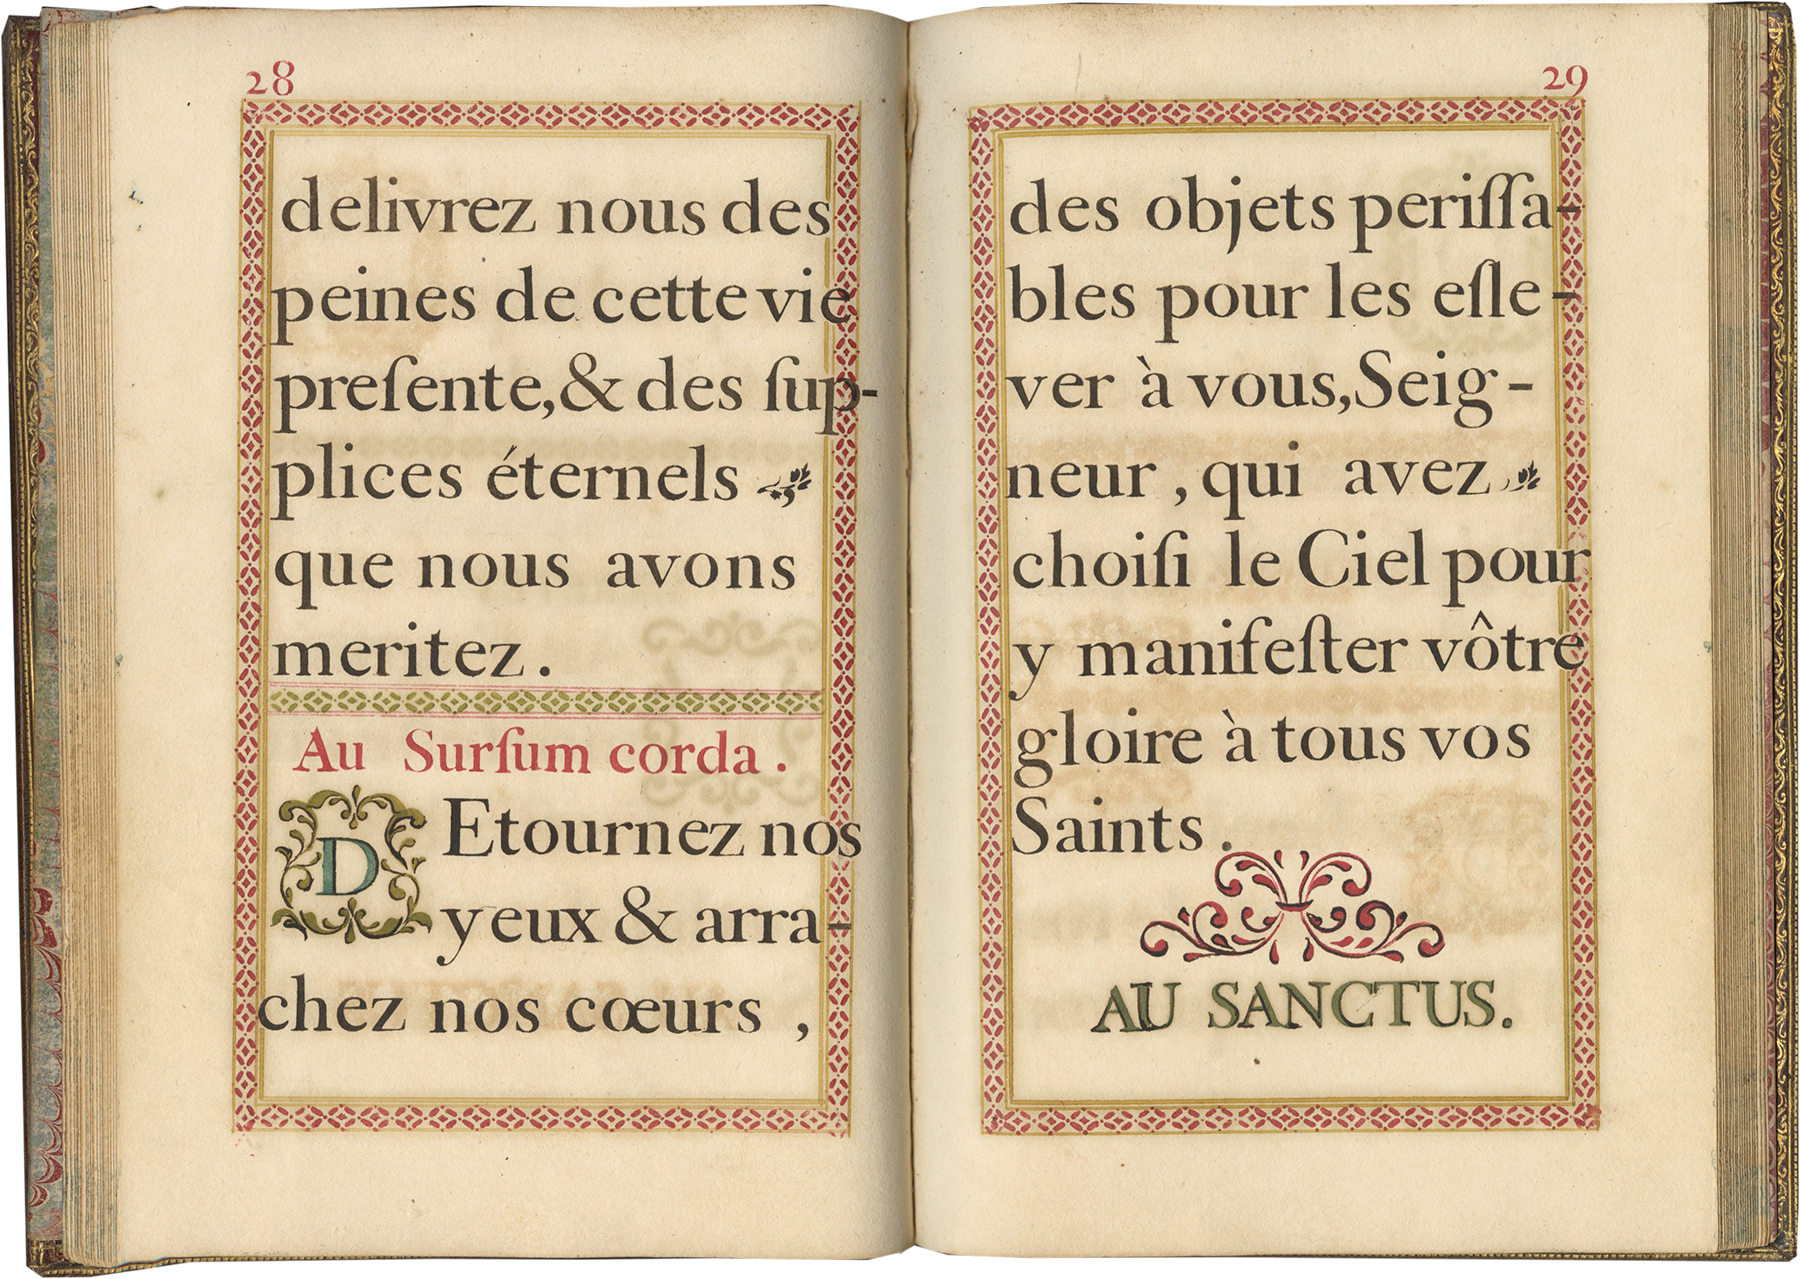 28
delivrez nous des
peines de cette vie
preſente,& des ſup-
plices éternels
que nous avons
meritez.
Au Surſum corda.
DEtournez nos
yeux & arra-
chez nos cœurs ,
29
des objets periſſa-
bles pour les eſle-
ver à vous,Seig-
neur , qui avez
choiſi le Ciel pour
y manifeſter vôtre
gloire à tous vos
Saints .
AU SANCTUS.